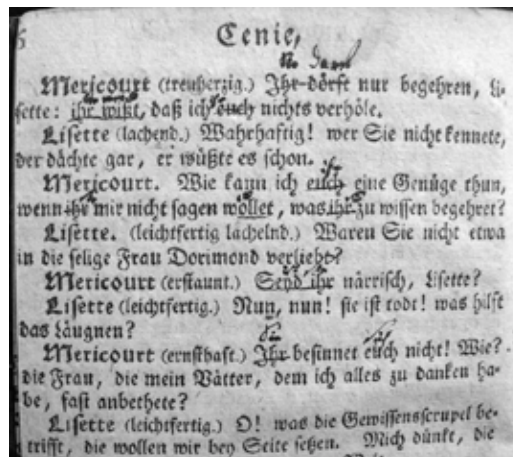 6 Cenie,
Mericourt (treuherzig.) Ihr dörft nur begehren, Li-
sette: ihr wißt, daß ich euch nichts verhöle.
Lisette (lachend.) Wahrhaftig! wer Sie nicht kennete,
der dächte gar, er wüßte es schon.
Mericourt. Wie kann ich euch eine Genüge thun,
wenn ihr mir nicht sagen wollet, was ihr zu wissen begehret?
Lisette. (leichtfertig lächelnd.) Waren Sie nicht etwa
in die selige Frau Dorimond verliebt?
Mericourt (erstaunt.) Seyd ihr närrisch, Lisette?
Lisette (leichtfertig.) Nun, nun! sie ist todt! was hilft
das Läugnen?
Mericourt (ernsthaft.) Ihr besinnet euch nicht! Wie?
die Frau, die mein Vatter, dem ich alles zu danken ha-
be, fast anbethete?
Lisette (leichtfertig.) O! was die Gewissensscrupel be-
trifft, die wollen wir bey Seite setzen. Mich dünkt, die